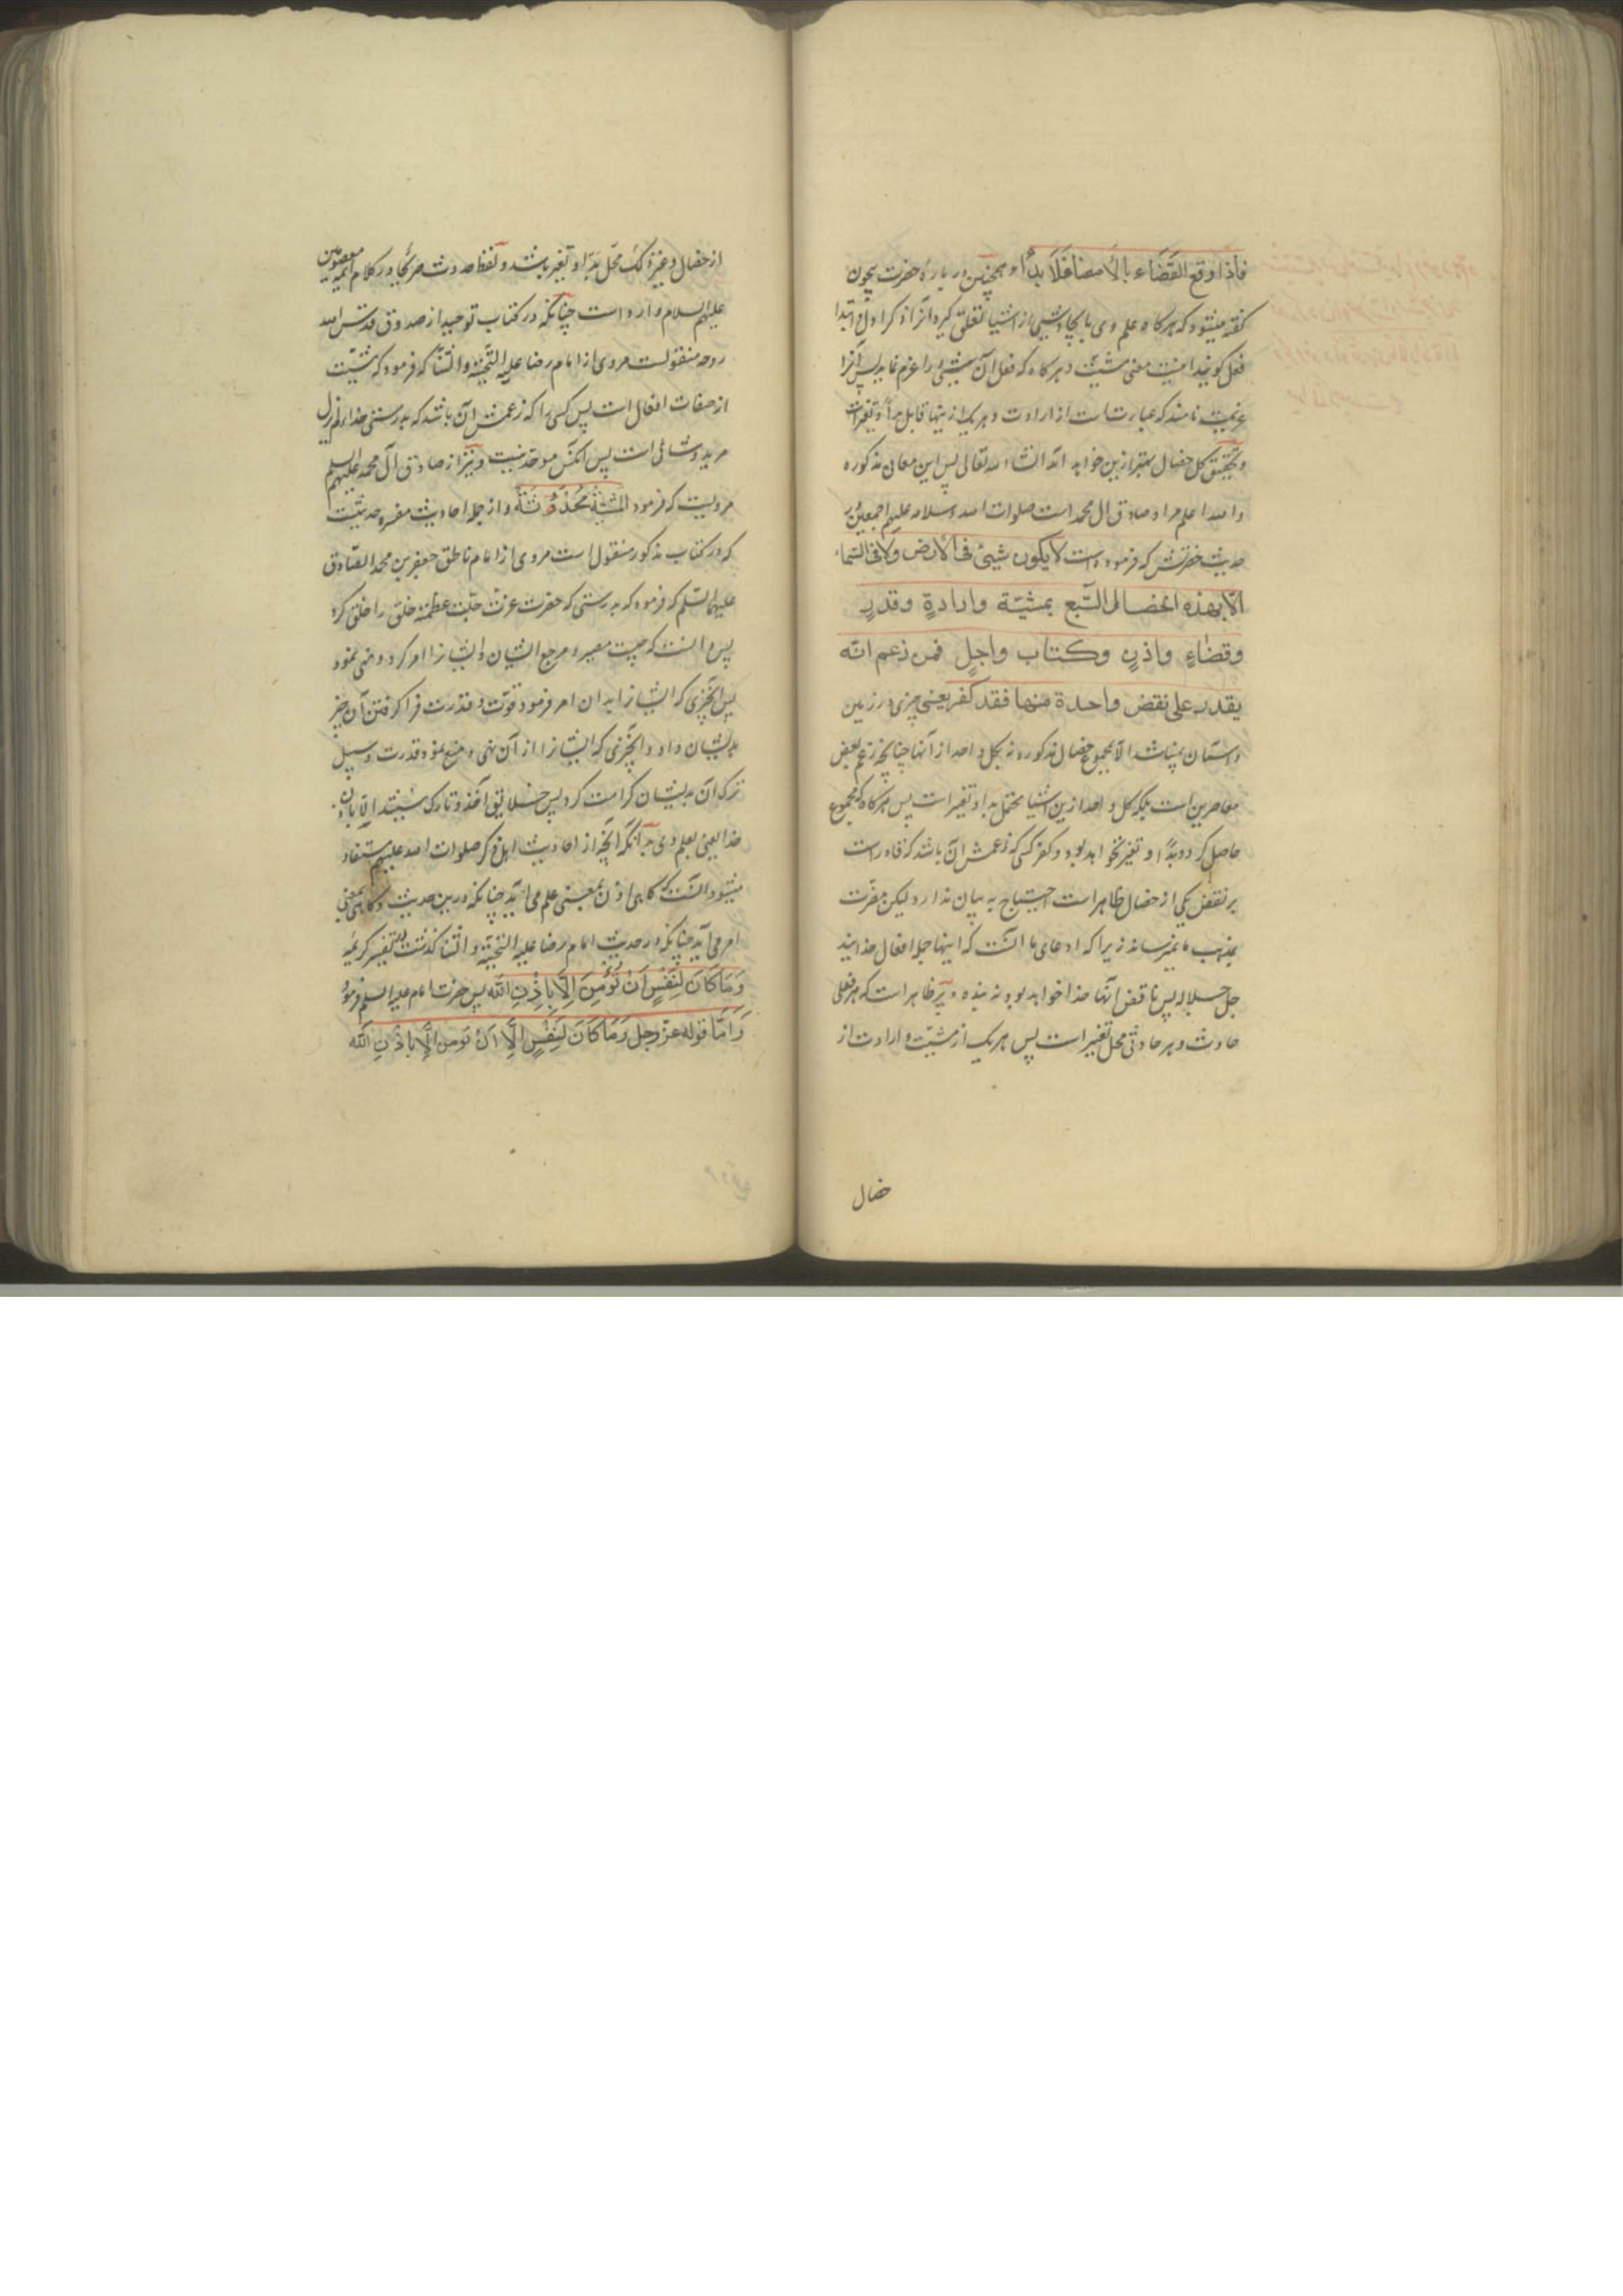 فاذا وقع القضاء بالامضا فلا بداء و همچنین در باره حضرت بیچون
گفته میشود که هرگاه علم وی بایجاد شیئی از اشیا تعلق گیرد انرا ذکر اول و ابتدا
فعل گویند اینست معنی مشیت و هرگاه که فعل آن شیئی را عزم نماید پس آنرا
عزیمت نامند که عبارتست از ارادت و هر یک ازینها قابل بدا و تغیر است
و تحقیق کل خصال بهتر ازین خواهد آمد انشاء الله تعالی پس این معانی مذکوره
والله اعلم مراد صادق ال محمد است صلوات الله وسلامه علیهم اجمعین در
حدیث حضرتش که فرموده است لا یکون شیئ فی الارض ولا فی السماء
الا بهذه الخصال السّبع بمشیّة وارادةٍ وقدرٍ
وقضاءٍ واذنٍ وکتاب واجلٍ فمن زعم انّه
یقدر علی نقض واحدة منها فقد کفر یعنی چیزی در زمین
و آسمان نمیباشد الا بمجموع خصال مذکوره نه بکل واحد از آنها چنانچه زعم بعض
معاصرین است بلکه کل واحد ازین اشیا محتمل بدا و تغیر است پس هرگاه که مجموع
حاصل گردد بدا و تغیر نخواهد بود و کفر کسی که زعمش آن باشد که قادر است
بر نقض یکی از خصال ظاهر است احتیاج به بیان ندارد لیکن مضرت
بمذهب ما نمیرساند زیرا که ادعای ما آنست که اینها جمله افعال خدایند
جل جلاله پس ناقض آنها خدا خواهد بود نه بنده و نیز ظاهر است که هر فعلی
حادث و هر حادثی محل تغیر است پس هر یک از مشیت و ارادت از
خصال
از خصال وغیره لک محل بدا و تغیر باشند و لفظ حدوث صریحا در کلام ائمه معصومین
علیهم السلام وارد است چنانکه در کتاب توحید از صدوق قدس الله
روحه منقولست مروی از امام رضا علیه التحیة والثنا که فرمود که مشیّت
از صفات افعال است پس کسی را که زعمش آن باشد که بدرستی خدا لم یزل
مرید و شائی است پس آنکس موحد نیست و نیز از صادق آل محمد علیهم السلم
مرویست که فرمود المشیة محدثة و از جمله احادیث مفسره حدیثیست
که در کتاب مذکور منقول است مروی از امام ناطق جعفر بن محمد الصّادق
علیهما السّلم که فرمود که بدرستی که حضرت عزت جلت عظمته خلق را خلق کرد
پس دانست که چیست مصیر و مرجع ایشان و ایشانرا امر کرد و نهی نمود
پس آنچیزی که ایشانرا بدان امر فرمود قوت و قدرت فرا گرفتن آن چیز
بدیشان داد و آنچیزی که ایشانرا از آن نهی و منع نمود قدرت و سبیل
ترک آن بدیشان کرامت کرد پس خلایق آخذ و تارک نیستند الا باذن
خدا یعنی بعلم وی بدانکه آنچه از احادیث اهل ذکر صلوات الله علیهم مستفاد
میشود آنست که گاهی اذن بمعنی علم می آید چنانکه درین حدیث و گاهی بمعنی
امر می آید چنانکه در حدیث امام رضا علیه التحیة والثنا گذشت در تفسیر کریمه
وَمَا کَانَ لِنَفْسٍ اَنْ تُؤْمِنَ اِلّا بِاِذْنِ الله پس حضرت امام علیه السلم فرمود
وَاَمّا قوله عزّ وجل وَمَا کَانَ لِنَفْسٍ الّا اَنْ تؤمن اِلّا باذْنِ الله